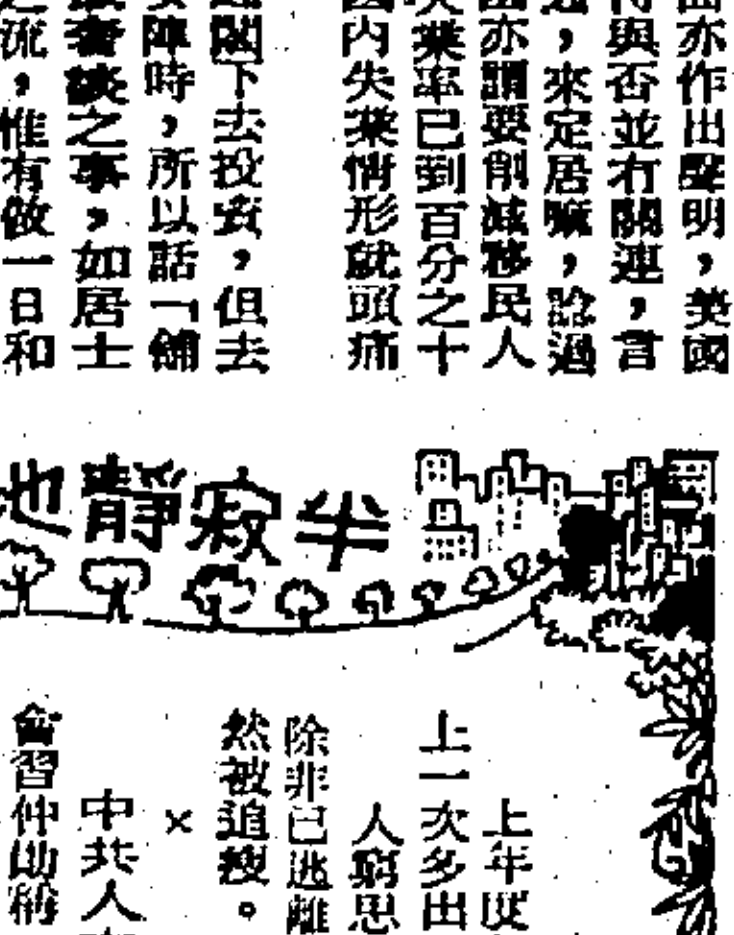 亦作出聲明，美國
與否並冇關連，言
，來定居嘛，諗過
亦謂要削減移民人
業率已到百分之十
內失業情形就頭痛
閣下去投資，但去
陣時，所以話「舖
奢談之事，如居士
之流，惟有做一日和
半寂靜地
上年度
上一次多出
人窮思
除非已逃離
然被追搜。
×
中共人
會習仲勛稱